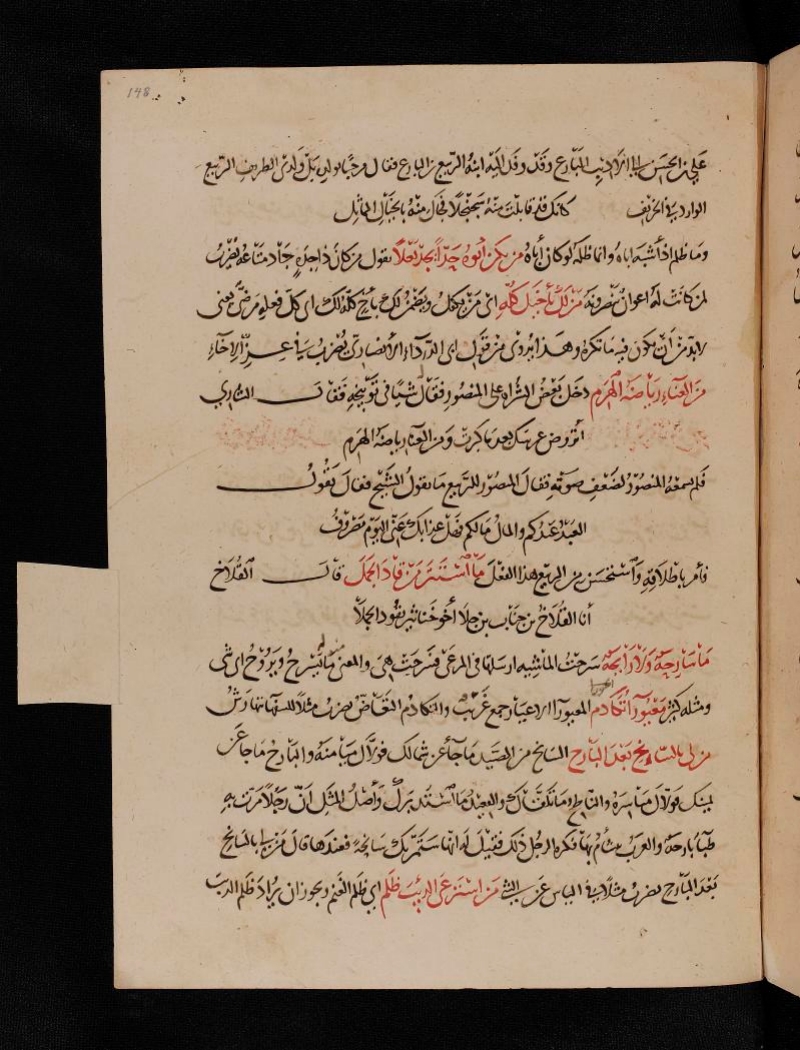 148
علي بن الحسن الاديب البارع وقد وفد اليه ابنه الربيع بن البارع فقال مرحبا بولدي بل ولدي الظريف الربيع
الوارد في الخريف كانك قد قابلت منه سجنجلا فجاك منه بالخيال الماثل
وما ظلم اذ اشبه اباه وانما ظلمه لو كان أباه من يكن ابوه حذّاءً يجد نعلاً يقول من كان ذا جدة جاد متاعه يضرب
لمن كانت له اعوان ينصرونه من لك بأخيك كله اي من يكفل ويضمن لك بأخ كله لك اي كل فعله مرضي يعني
لا بد من أن يكون فيه ما تكره وهذا يروى من قول ابي الدرداء الانصاري يضرب في عز الإخاء
من العناء رياضة الهرم دخل بعض الشراة على المنصور فقال شيئا في توبيخه فقال الشاري
أتروض عرسك بعد ما كبرت ومن العناء رياضة الهرم
فلم يسمعه المنصور لضعف صوته فقال المنصور للربيع ما يقول الشيخ فقال يقول
العبد عبدكم والمال مالكم فهل عذابك عني اليوم مصروف
فأمر باطلاقه وأستحسن من الربيع هذا الفعل ما استتر من قاد الجمل قال القلاخ
أنا القلاخ بن جناب بن جلا أخو خناثير يقود الجملا
ما له سارحة ولا رائحة سرحت الماشية ارسلتها في المرعى فسرحت هي والمعنى ما له ما تسرح وتروح اي شي
ومثله كثير
المعيورا الاعيار جمع غريب والتكادم التعاض يضرب مثلا للسفهاء تهارش
من لي بالسانح بعد البارح السانح من الصيد ما جاء عن شمالك فولاك ميامنه والبارح ما جا عن
يمينك فولاك مياسره والناطح ما تلقاك والقعيد ما استدبرك وأصل المثل ان رجلا مرت به
ظباء بارحة والعرب يتشأم بها فكره الرجل ذلك فقيل له انها ستمر بك سانحة فعندها قال من لي بالسانح
بعد البارح يضرب مثلا في الياس عن الشي من استرعى الذيب ظلم اي ظلم الغنم ويجوز ان يراد ظلم الذيب